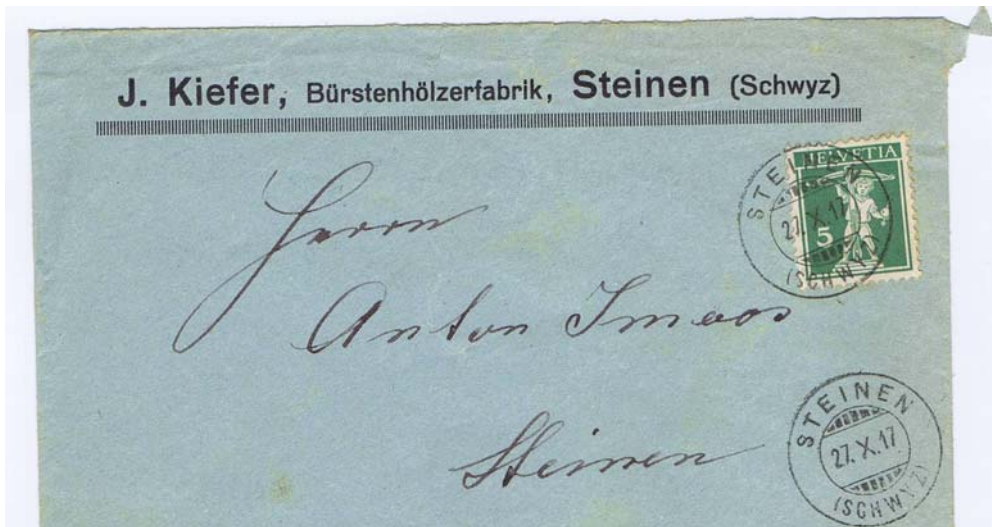 J. Kiefer, Bürstenhölzerfabrik, Steinen (Schwyz)
HELVETIA
5
STEINEN
27.X.17
(SCHWYZ)
Herrn
Anton Imoos
Steinen
STEINEN
27.X.17
(SCHWYZ)